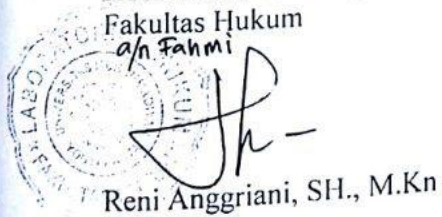 Fakultas Hukum
a/n Fahmi
Reni Anggriani, SH., M.Kn